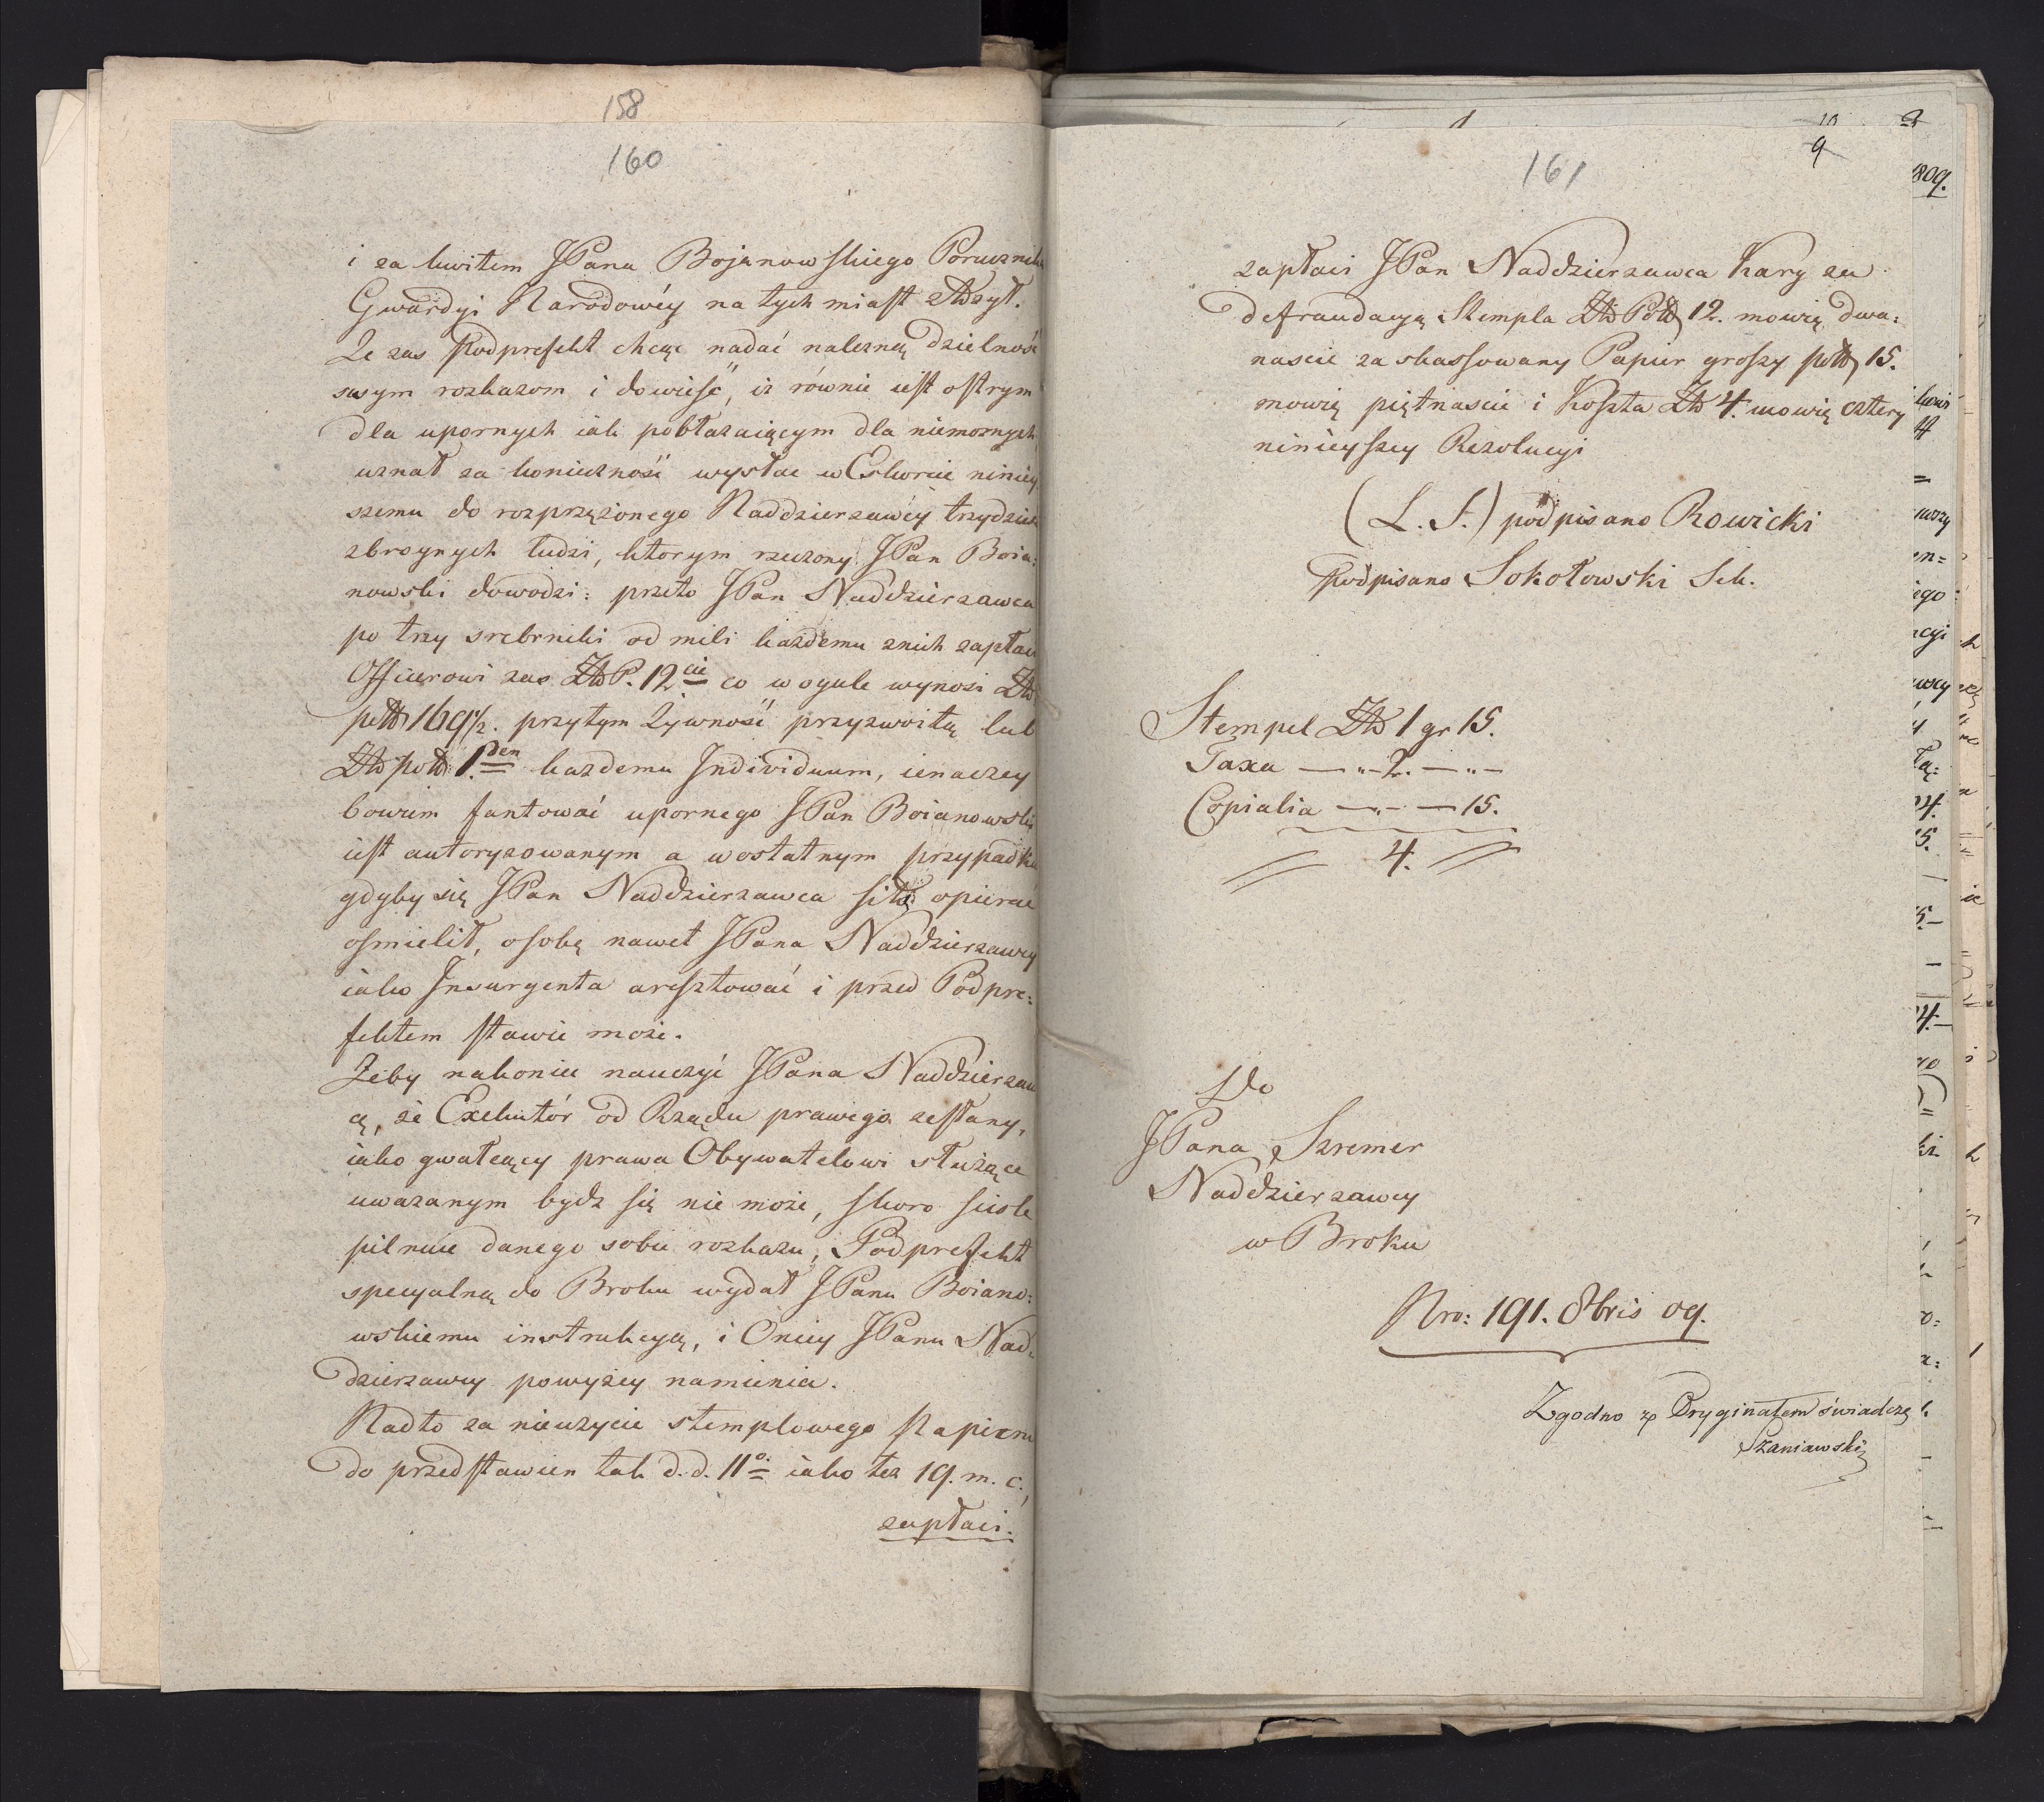 158
160
i za kwitem JPana Bojanowskiego Porucznika
Gwardyi Narodowéy na tych miast złożył.
Że zas Podprefekt chcąc nadać należną dzielność
swym rozkazom i dowieść, iż równie iest ostrym
dla upornych iak pobłażaiącym dla niemożnych
uznał za konieczność wysłac w Eskorcie niniey
szemu do rozprzężonego Naddzierzawcy trzydziest
zbroynych ludzi, ktorym rzeczony JPan Boia:
nowski dowodzi: przeto JPan Naddzierzawca
po trzy srebrniki od mili każdemu znich zapłaci
Officerowi zas Zł P. 12cie co wogule wynosi Zł
pol 169½. przytym Zywność przyzwoitą lub
Zł pol 1.den każdemu Individuum, ienaczey
bowiem fantować upornego JPan Boianowski
iest autoryzowanym a wostatnym przypadku
gdyby się JPan Naddzierzawca siłą opierać
osmielił, osobę nawet JPana Naddzierzawcy
iako Insurgenta aresztować i przed Podpre:
fektem stawic może.
Zeby nakoniec nauczyć JPana Naddzierzaw
cę, że Exekutór od Rządu prawego zesłany,
iako gwałcący prawa Obywatelowi służące
uwazanym bydz się nie może, skoro scisle
pilnuie danego sobie rozkazu, Podprefekt
specyalną do Broku wydał JPanu Boiano:
wskiemu instrukcyą, i Oniey JPanu Nad:
dzierzawcy powyżey namienia.
Nadto za nieuzycie stemplowego Papieru
do przedstawien tak d. d. 11o. iako tez 19. m. c.,
zapłaci.
10 2
9
161
1809.
zapłaci JPan Naddzierzawca Kary za
defraudacyą Stempla Zł Pol 12. mowię dwa:
nascie za skassowany Papier groszy pol 15.
mowię piętnascie i Koszta Zł 4 mowię cztery
ninieyszey Rezolucyi
(L. S.) podpisano Rowicki
Podpisano Sokołowski Sek.
Stempel Zł 1 gr 15.
Taxa — „ — 2. — „ —
Copialia — „ — 15.
4.
Do
JPana Szremer
Naddzierzawcy
w Broku
Nro: 191. 8bris 09.
Zgodno z Oryginałem świadczę
Szaniawski